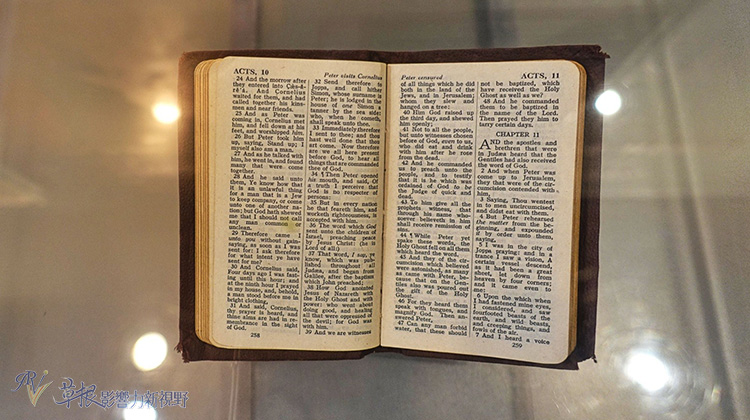 ACTS, 10
Peter visits Cornelius
24 And the morrow after
they entered into Cæs-a-
rē'a. And Cornelius
waited for them, and had
called together his kins-
men and near friends.
25 And as Peter was
coming in, Cornelius met
him, and fell down at his
feet, and worshipped him.
26 But Peter took him
up, saying, Stand up; I
myself also am a man.
27 And as he talked with
him, he went in, and found
many that were come
together.
28 And he said unto
them, Ye know how that
it is an unlawful thing
for a man that is a Jew
to keep company, or come
unto one of another na-
tion; but God hath shewed
me that I should not call
any man common or
unclean.
29 Therefore came I
unto you without gain-
saying, as soon as I was
sent for: I ask therefore
for what intent ye have
sent for me?
30 And Cornelius said,
Four days ago I was fast-
ing until this hour; and
at the ninth hour I prayed
in my house, and, behold,
a man stood before me in
bright clothing,
31 And said, Cornelius,
thy prayer is heard, and
thine alms are had in re-
membrance in the sight
of God.
32 Send therefore to
Joppa, and call hither
Simon, whose surname is
Peter; he is lodged in the
house of one Simon a
tanner by the sea side:
who, when he cometh,
shall speak unto thee.
33 Immediately therefore
I sent to thee; and thou
hast well done that thou
art come. Now therefore
are we all here present
before God, to hear all
things that are commanded
thee of God.
34 ¶ Then Peter opened
his mouth, and said, Of
a truth I perceive that
God is no respecter of
persons:
35 But in every nation
he that feareth him, and
worketh righteousness, is
accepted with him.
36 The word which God
sent unto the children of
Israel, preaching peace
by Jesus Christ: (he is
Lord of all:)
37 That word, I say, ye
know, which was pub-
lished throughout all
Judæa, and began from
Galilee, after the baptism
which John preached;
38 How God anointed
Jesus of Nazareth with
the Holy Ghost and with
power: who went about
doing good, and healing
all that were oppressed of
the devil; for God was
with him.
39 And we are witnesses
258
Peter censured
ACTS, 11
of all things which he did
both in the land of the
Jews, and in Jerusalem;
whom they slew and
hanged on a tree:
40 Him God raised up
the third day, and shewed
him openly;
41 Not to all the people,
but unto witnesses chosen
before of God, even to us,
who did eat and drink
with him after he rose
from the dead.
42 And he commanded
us to preach unto the
people, and to testify
that it is he which was
ordained of God to be
the Judge of quick and
dead.
43 To him give all the
prophets witness, that
through his name who-
soever believeth in him
shall receive remission of
sins.
44 ¶ While Peter yet
spake these words, the
Holy Ghost fell on all them
which heard the word.
45 And they of the cir-
cumcision which believed
were astonished, as many
as came with Peter, be-
cause that on the Gen-
tiles also was poured out
the gift of the Holy
Ghost.
46 For they heard them
speak with tongues, and
magnify God. Then an-
swered Peter,
47 Can any man forbid
water, that these should
not be baptized, which
have received the Holy
Ghost as well as we?
48 And he commanded
them to be baptized in
the name of the Lord.
Then prayed they him to
tarry certain days.
CHAPTER 11
AND the apostles and
brethren that were
in Judæa heard that the
Gentiles had also received
the word of God.
2 And when Peter was
come up to Jerusalem,
they that were of the cir-
cumcision contended with
him,
3 Saying, Thou wentest
in to men uncircumcised,
and didst eat with them.
4 But Peter rehearsed
the matter from the be-
ginning, and expounded
it by order unto them,
saying,
5 I was in the city of
Joppa praying: and in a
trance I saw a vision, A
certain vessel descend,
as it had been a great
sheet, let down from
heaven by four corners;
and it came even to
me:
6 Upon the which when
I had fastened mine eyes,
I considered, and saw
fourfooted beasts of the
earth, and wild beasts,
and creeping things, and
fowls of the air.
7 And I heard a voice
259
草根影響力新視野